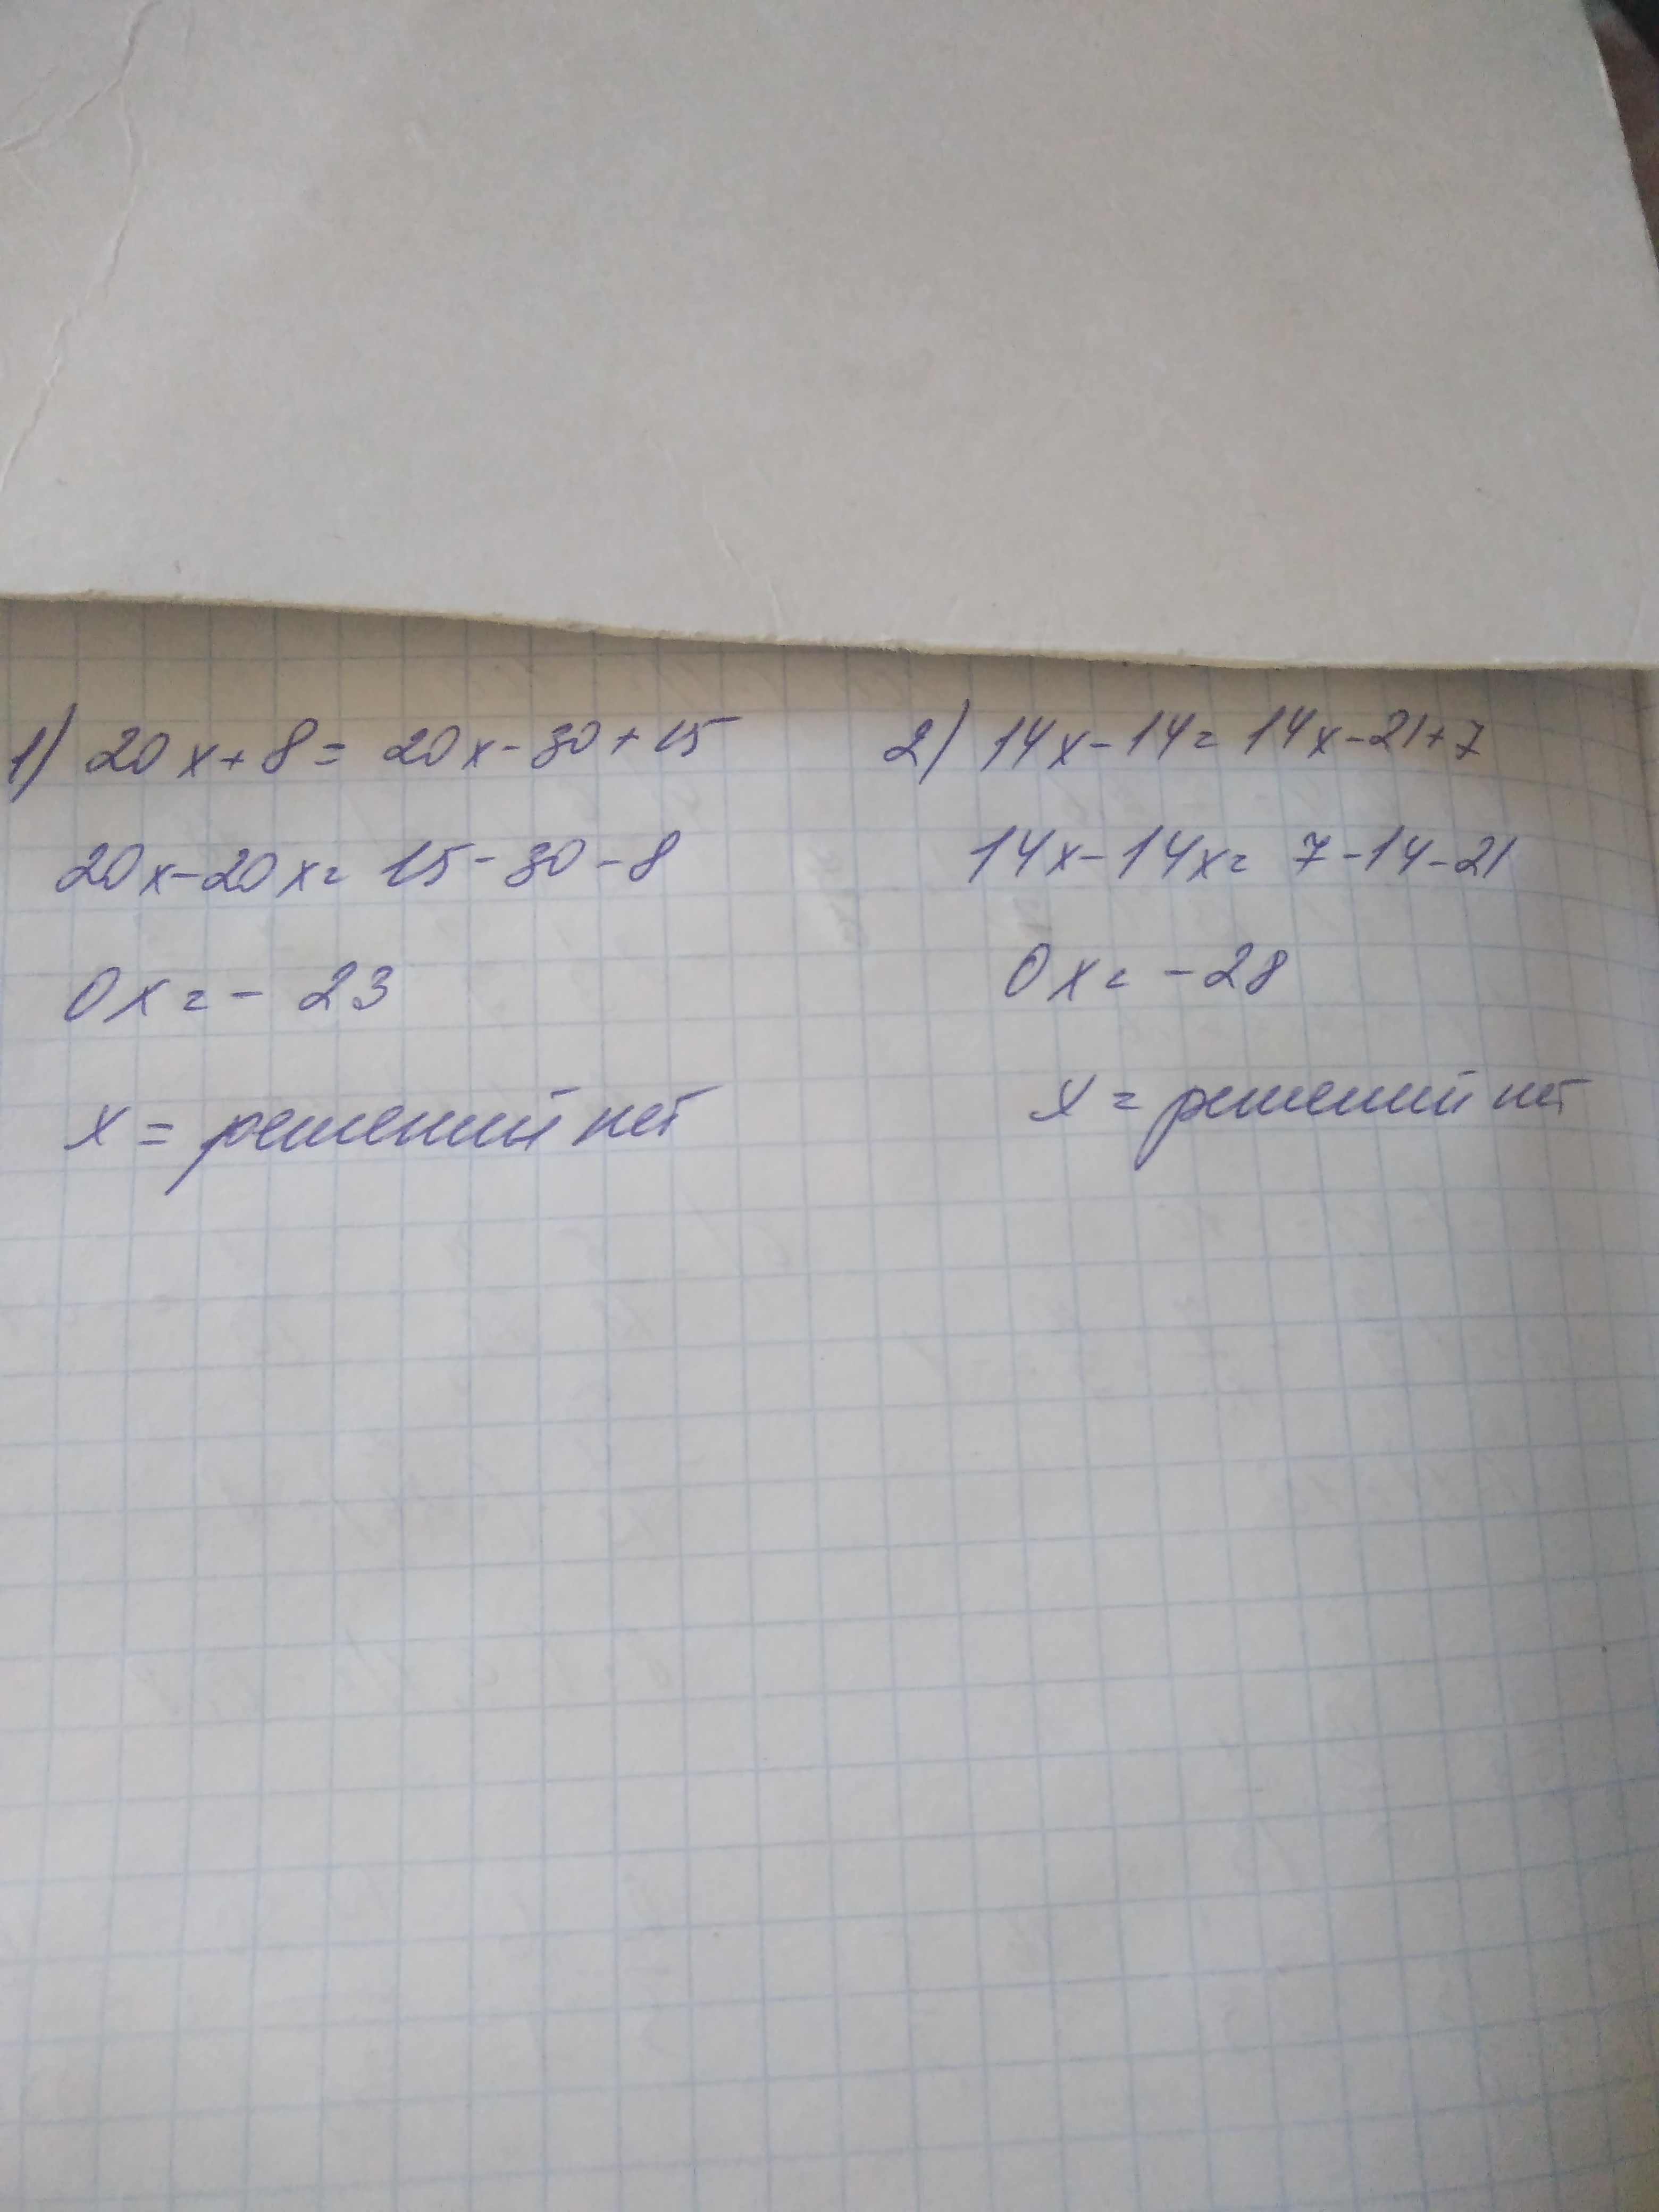 1) 20x+8= 20x-30+15
20x-20x= 15-30-8
0x=- 23
x = решений нет
2) 14x-14= 14x-21+7
14x-14x= 7-14-21
0x= -28
x = решений нет